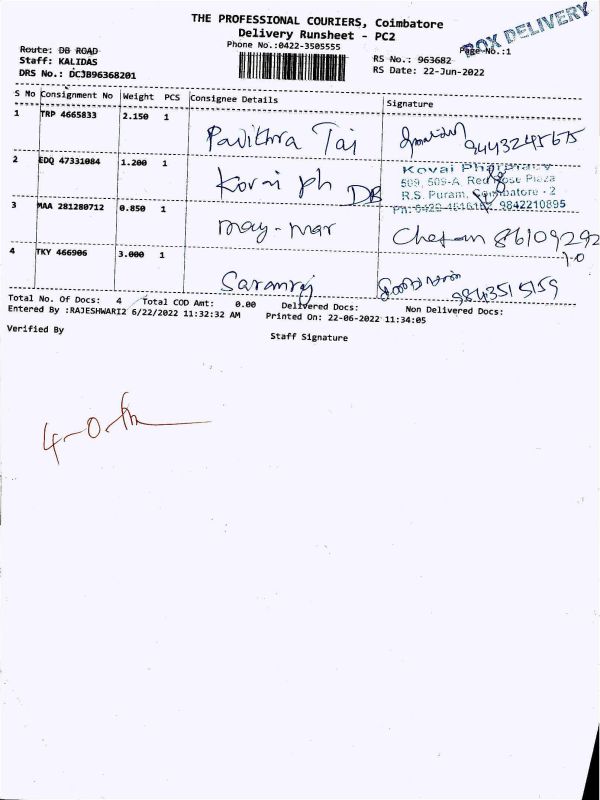 THE PROFESSIONAL COURIERS, Coimbatore
Delivery Runsheet - PC2
BOX DELIVERY
Phone No.:0422-3505555
Page No.:1
Route: DB ROAD
Staff: KALIDAS
DRS No.: DCJB96368201
RS No.: 963682
RS Date: 22-Jun-2022
S No Consignment No Weight PCS Consignee Details Signature
1 TRP 4665833 2.150 1 Pavithra Tai 9443245675
2 EDQ 47331084 1.200 1 Kovai ph DB
Kovai Pharmacy
509, 509-A, Red Rose Plaza
R.S. Puram, Coimbatore - 2
9842210895
3 MAA 281280712 0.850 1 may-mar Chetan 86109292
10
4 TKY 466906 3.000 1 Saranraj 9843515159
Total No. Of Docs: 4 Total COD Amt: 0.00 Delivered Docs: Non Delivered Docs:
Entered By :RAJESHWARI2 6/22/2022 11:32:32 AM Printed On: 22-06-2022 11:34:05
Verified By
Staff Signature
4-0-